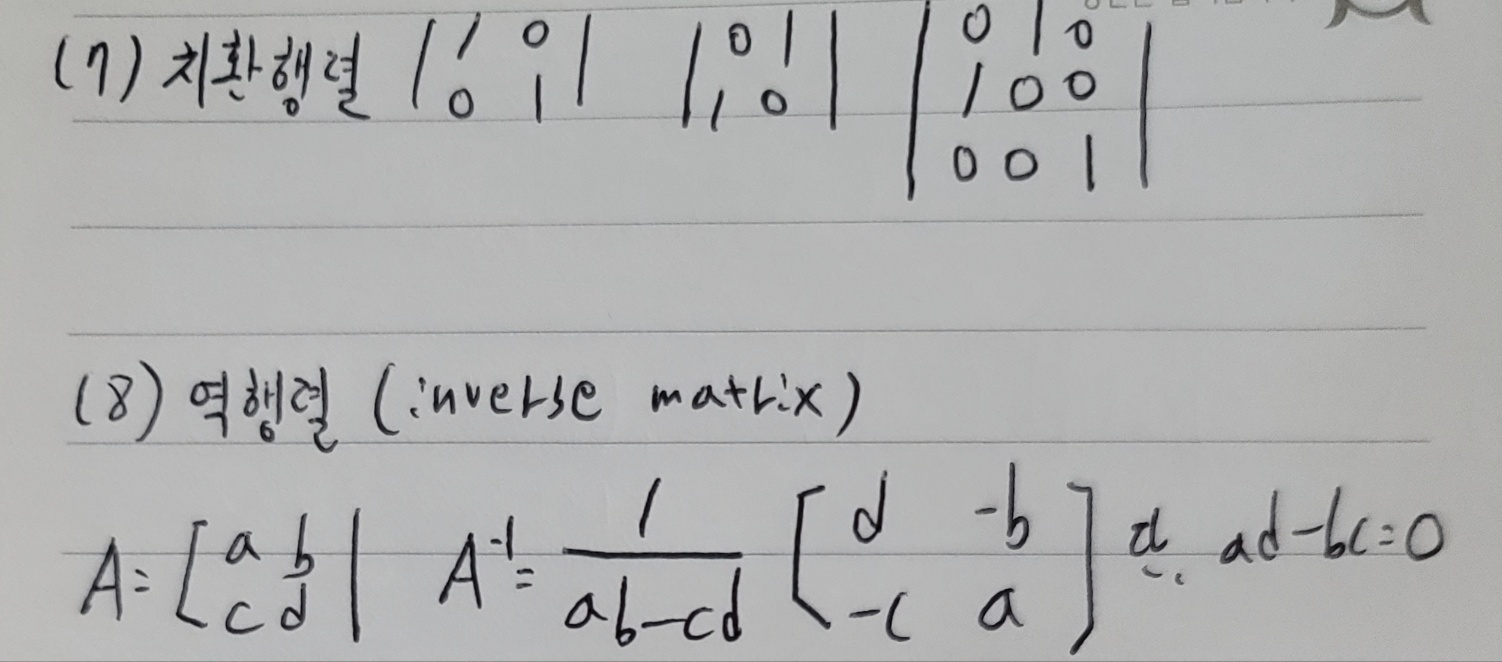 (7) 치환행렬 | 1 0 | | 0 1 | | 0 1 0 |
| 0 1 | | 1 0 | | 1 0 0 |
| 0 0 1 |
(8) 역행렬 (inverse matrix)
A = [ a b | A⁻¹ = 1 / (ab-cd) [ d -b ] ad-bc=0
c d | -c a ]